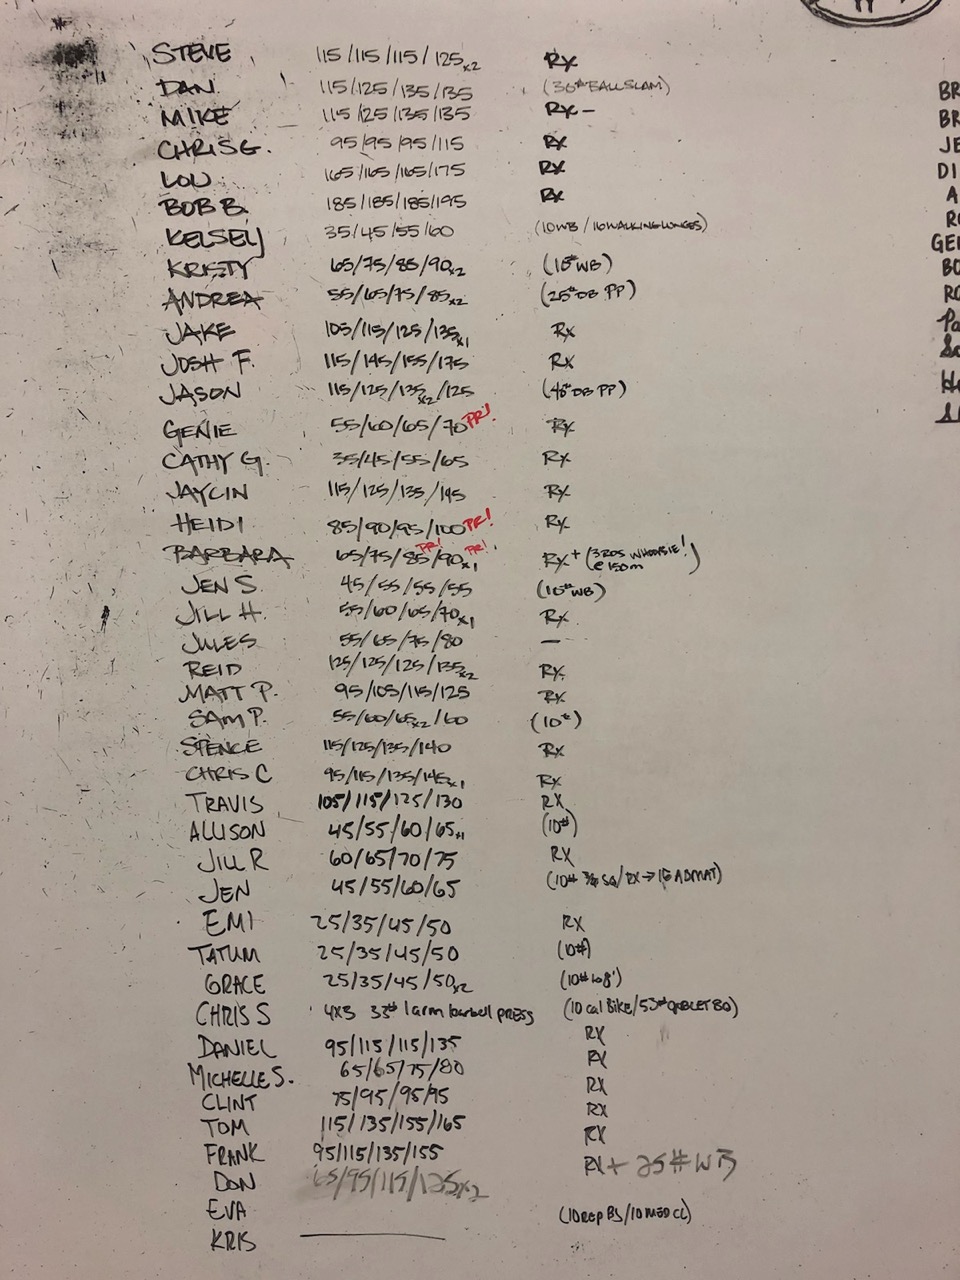 STEVE 115/115/115/125x2 RX
DAN 115/125/135/135 (30# BALL SLAM)
MIKE 115/125/135/135 RX -
CHRIS G. 95/95/95/115 RX
LOU 165/165/165/175 RX
BOB B. 185/185/185/195 RX
KELSEY 35/45/55/60 (10WB / 16 WALKING LUNGES)
KRISTY 65/75/85/90x2 (10# WB)
ANDREA 55/65/75/85x2 (25# DB PP)
JAKE 105/115/125/135x1 RX
JOSH F. 115/145/155/175 RX
JASON 115/125/135x2/125 (40# DB PP)
GENIE 55/60/65/70 PR! RX
CATHY G. 35/45/55/65 RX
JAYCIN 115/125/135/145 RX
HEIDI 85/90/95/100 PR! RX
BARBARA 65/75/85 PR!/90x1 PR! RX + (3 RDS WHOOPSIE! @ 150m)
JEN S. 45/55/55/55 (10# WB)
JILL H. 55/60/65/70x1 RX
JULES 55/65/75/80 —
REID 125/125/125/135x2 RX
MATT P. 95/105/115/125 RX
SAM P. 55/60/65x2/60 (10#)
SPENCE 115/125/135/140 RX
CHRIS C 95/115/135/145x1 RX
TRAVIS 105/115/125/130 RX
ALLISON 45/55/60/65x1 (10#)
JILL R 60/65/70/75 RX
JEN 45/55/60/65 (10# SQ/RX→ ADMAT)
EMI 25/35/45/50 RX
TATUM 25/35/45/50 (10#)
GRACE 25/35/45/50x2 (10# to 8')
CHRIS S 4X3 33# 1 arm barbell PRESS (10 cal Bike/53# GOBLET SQ)
DANIEL 95/115/115/135 RX
MICHELLE S. 65/65/75/80 RX
CLINT 75/95/95/95 RX
TOM 115/135/155/165 RX
FRANK 95/115/135/155 RX
DON 65/95/115/125x2 RX + 25# WB
EVA (10 REP BS/10 MED CL)
KRIS
BR
BR
JE
DI
A
RO
GE
BO
RO
Pa
So